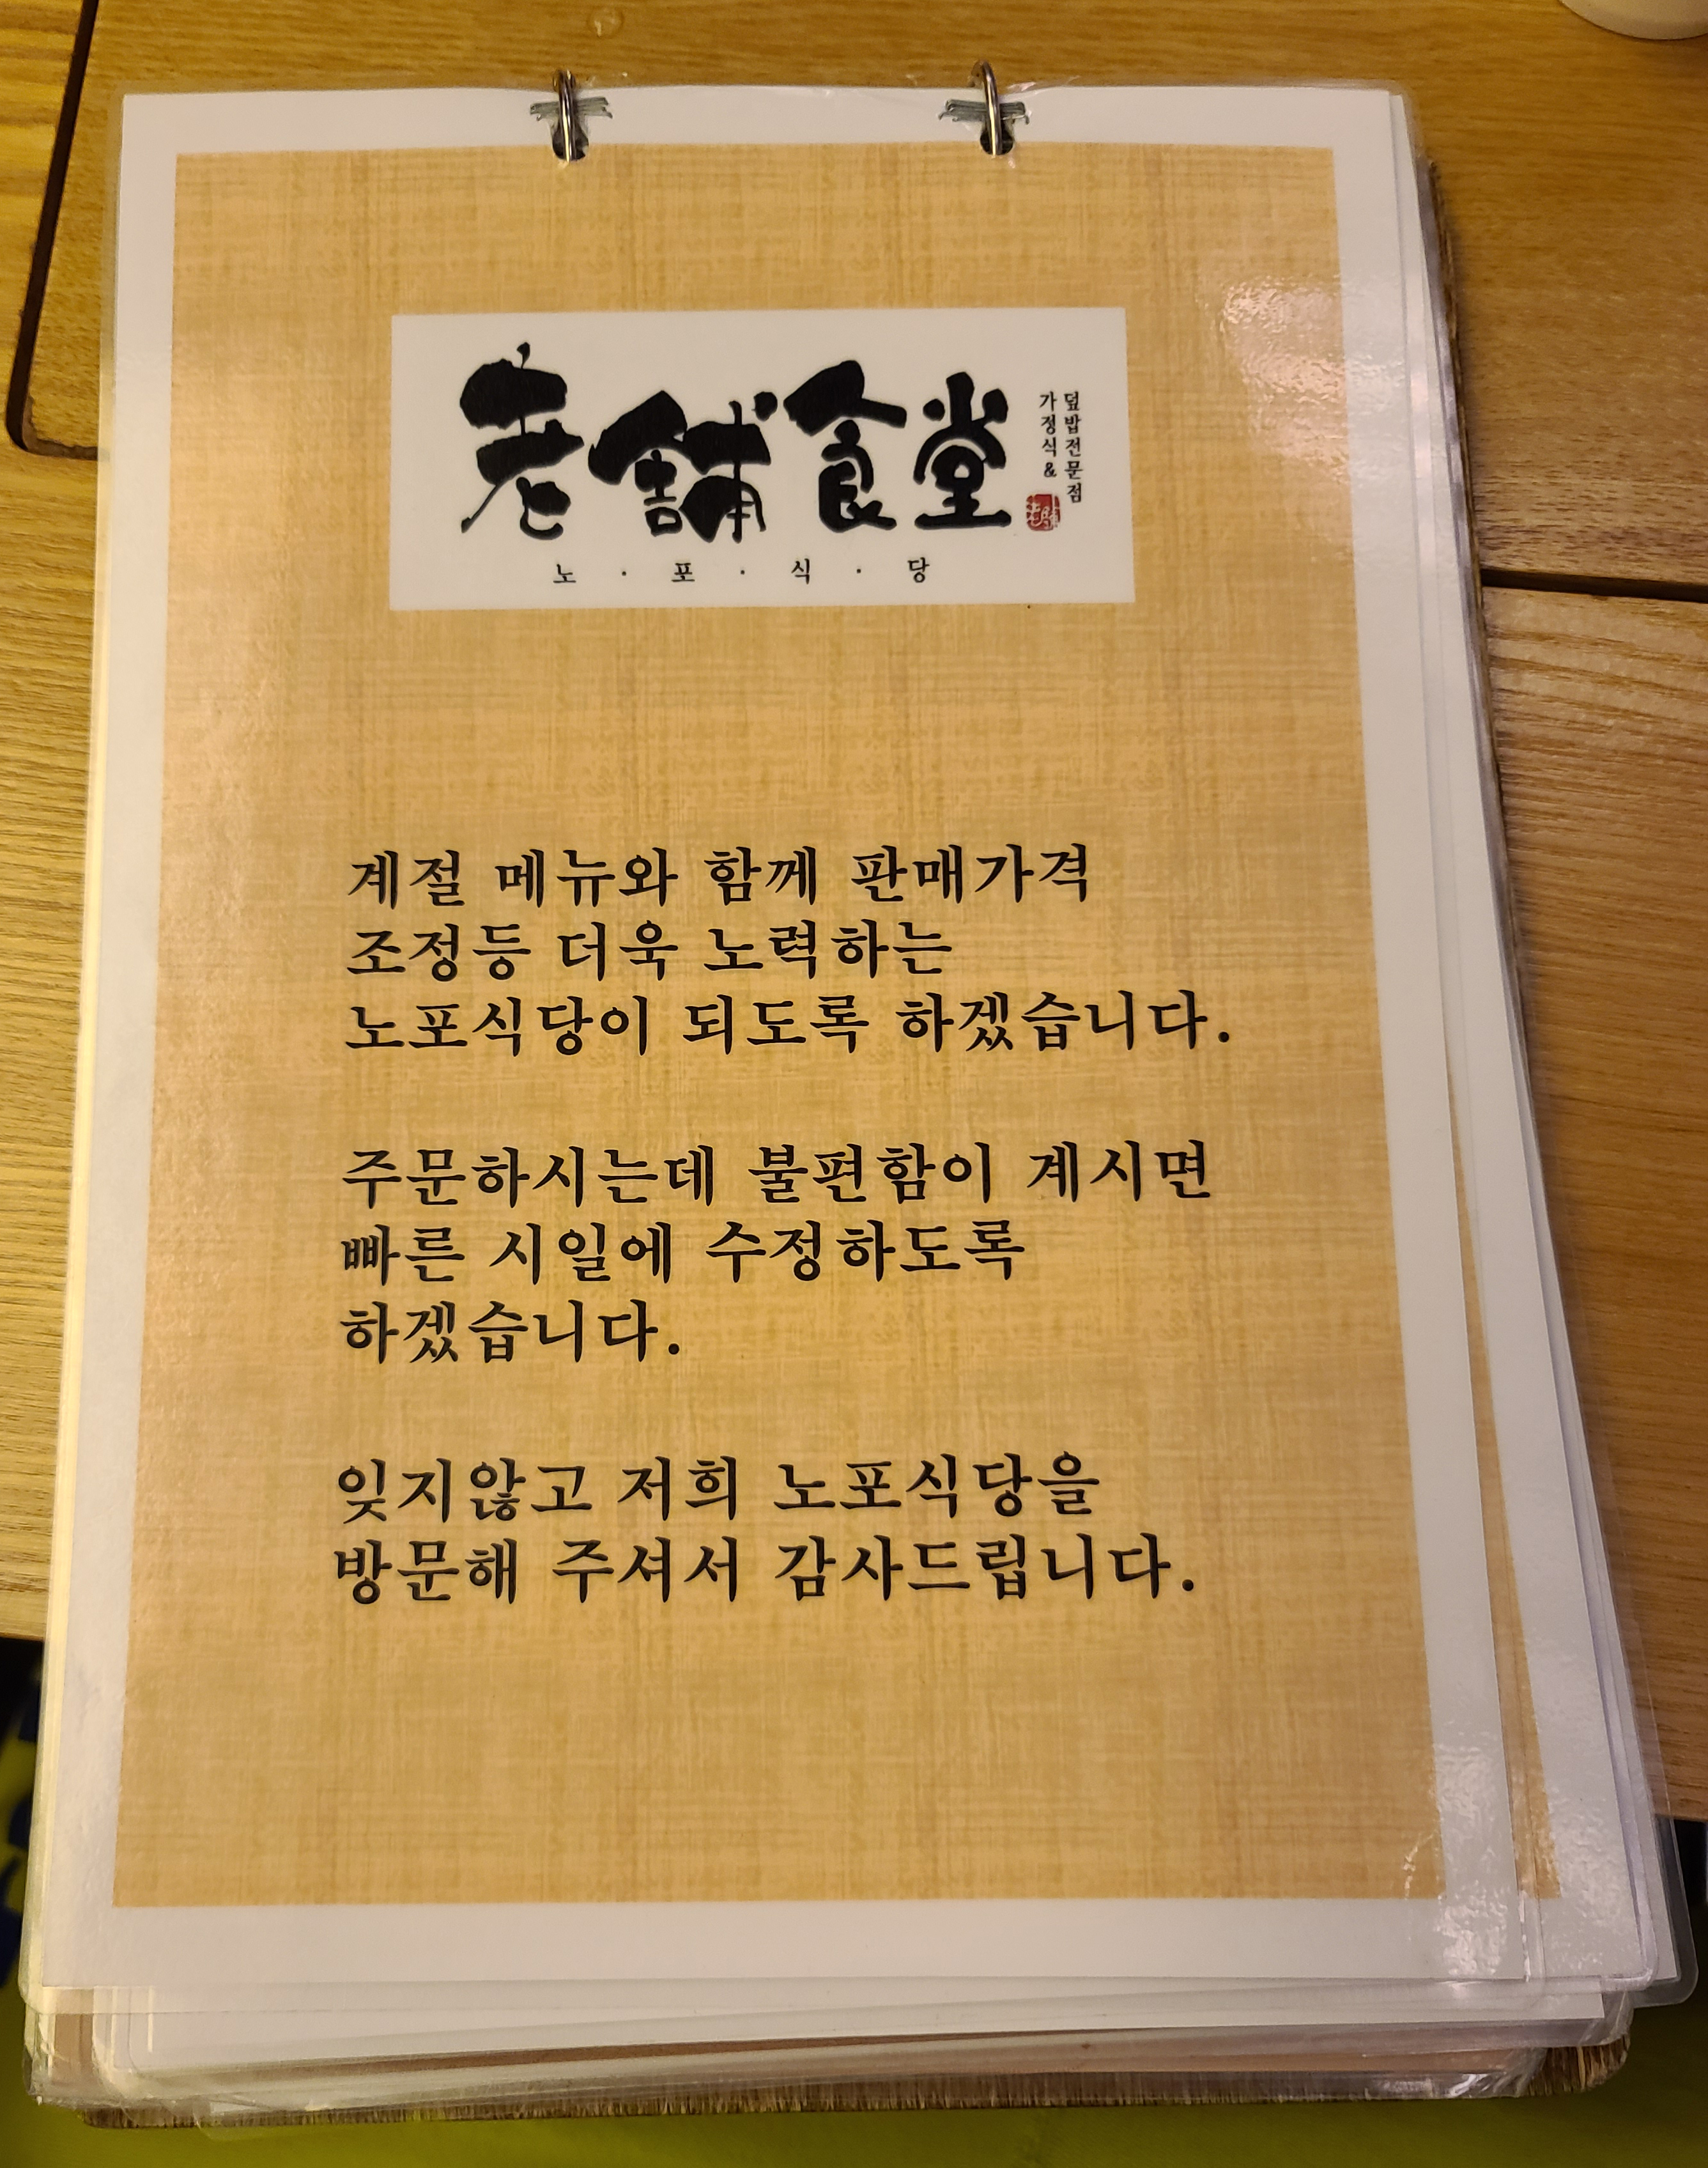 老舗食堂
덮밥전문점
가정식&
노·포·식·당
계절 메뉴와 함께 판매가격
조정등 더욱 노력하는
노포식당이 되도록 하겠습니다.
주문하시는데 불편함이 계시면
빠른 시일에 수정하도록
하겠습니다.
잊지않고 저희 노포식당을
방문해 주셔서 감사드립니다.